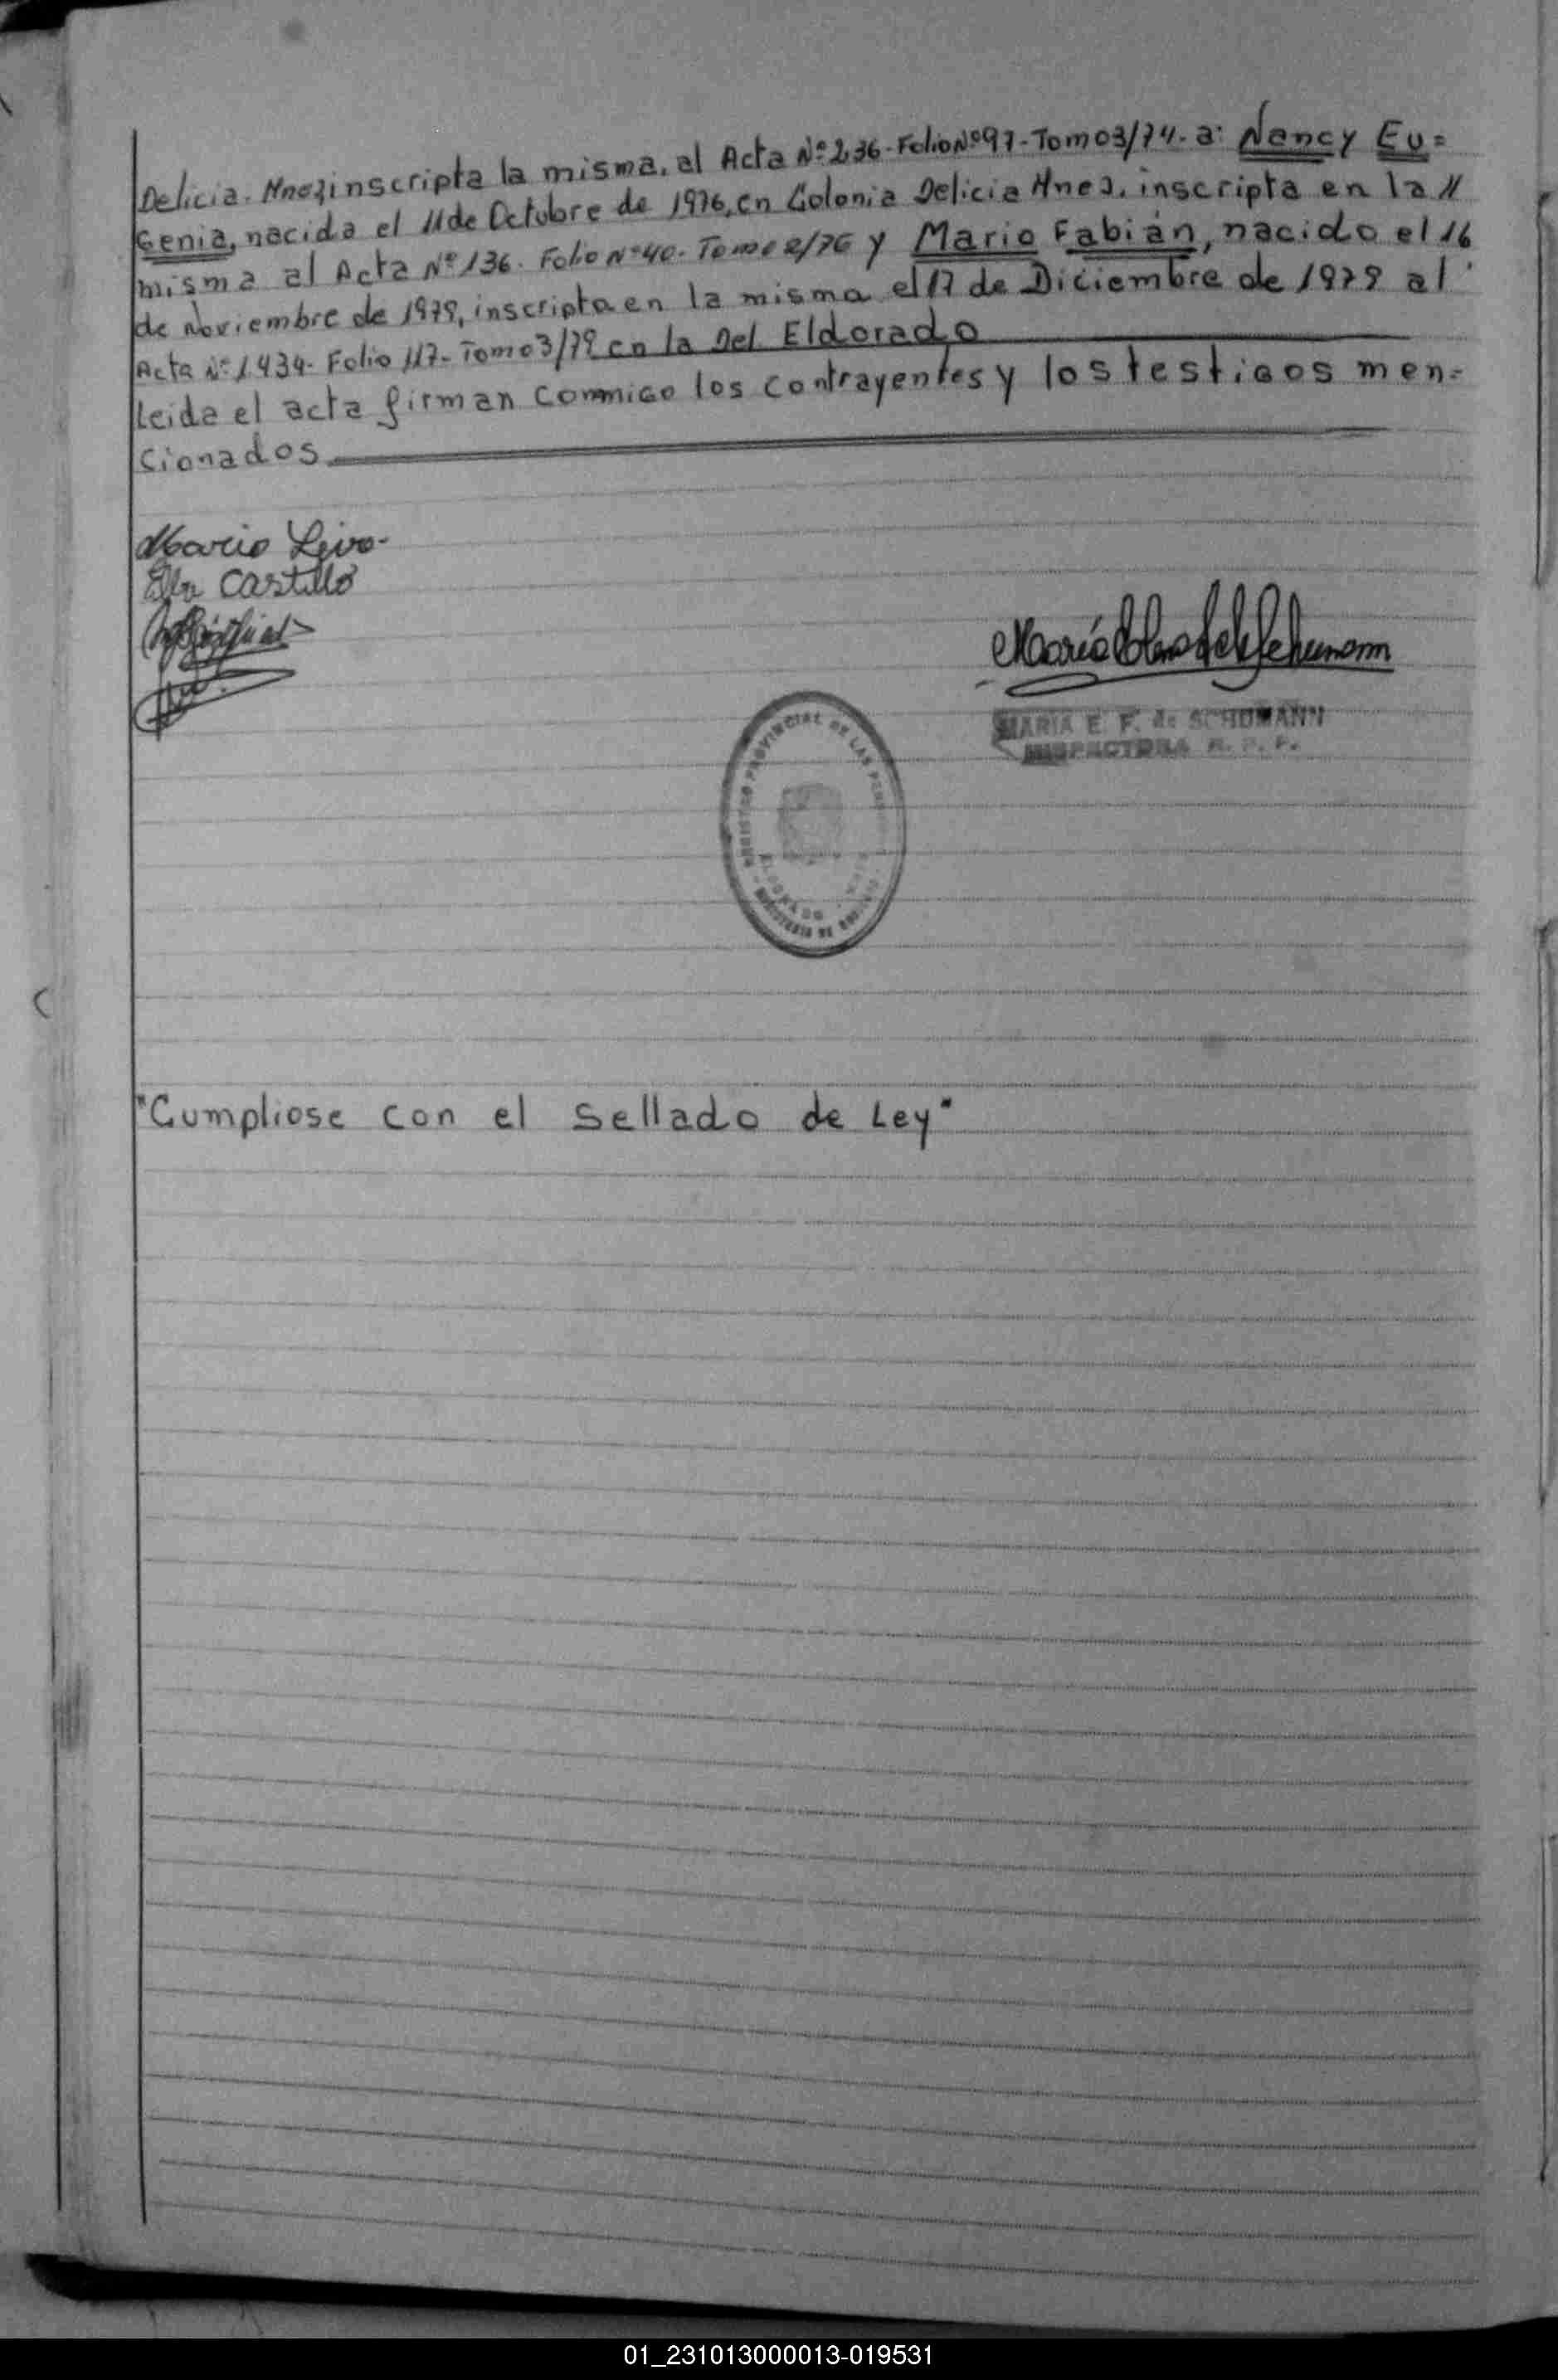 Delicia. Mnes; inscripta la misma, al Acta Nº 236 - Folio Nº 97 - Tomo 3/74 - a: Nancy Eu=
Genia, nacida el 11 de Octubre de 1976, en Colonia Delicia Mnes, inscripta en la //
misma al Acta Nº 136. Folio Nº 40. Tomo 2/76 y Mario Fabián, nacido el 16
de Noviembre de 1979, inscripta en la misma el 17 de Diciembre de 1979 al
Acta Nº 1434- Folio 117- Tomo 3/79 en la Del. Eldorado
Leida el acta firman conmigo los contrayentes y los testigos men=
cionados
Mario
Castillo
MARIA E. F. de SCHUMANN
INSPECTORA R. P. P.
REGISTRO PROVINCIAL DE LAS
ELDORADO
"Cumpliose con el Sellado de Ley"
01_231013000013-019531